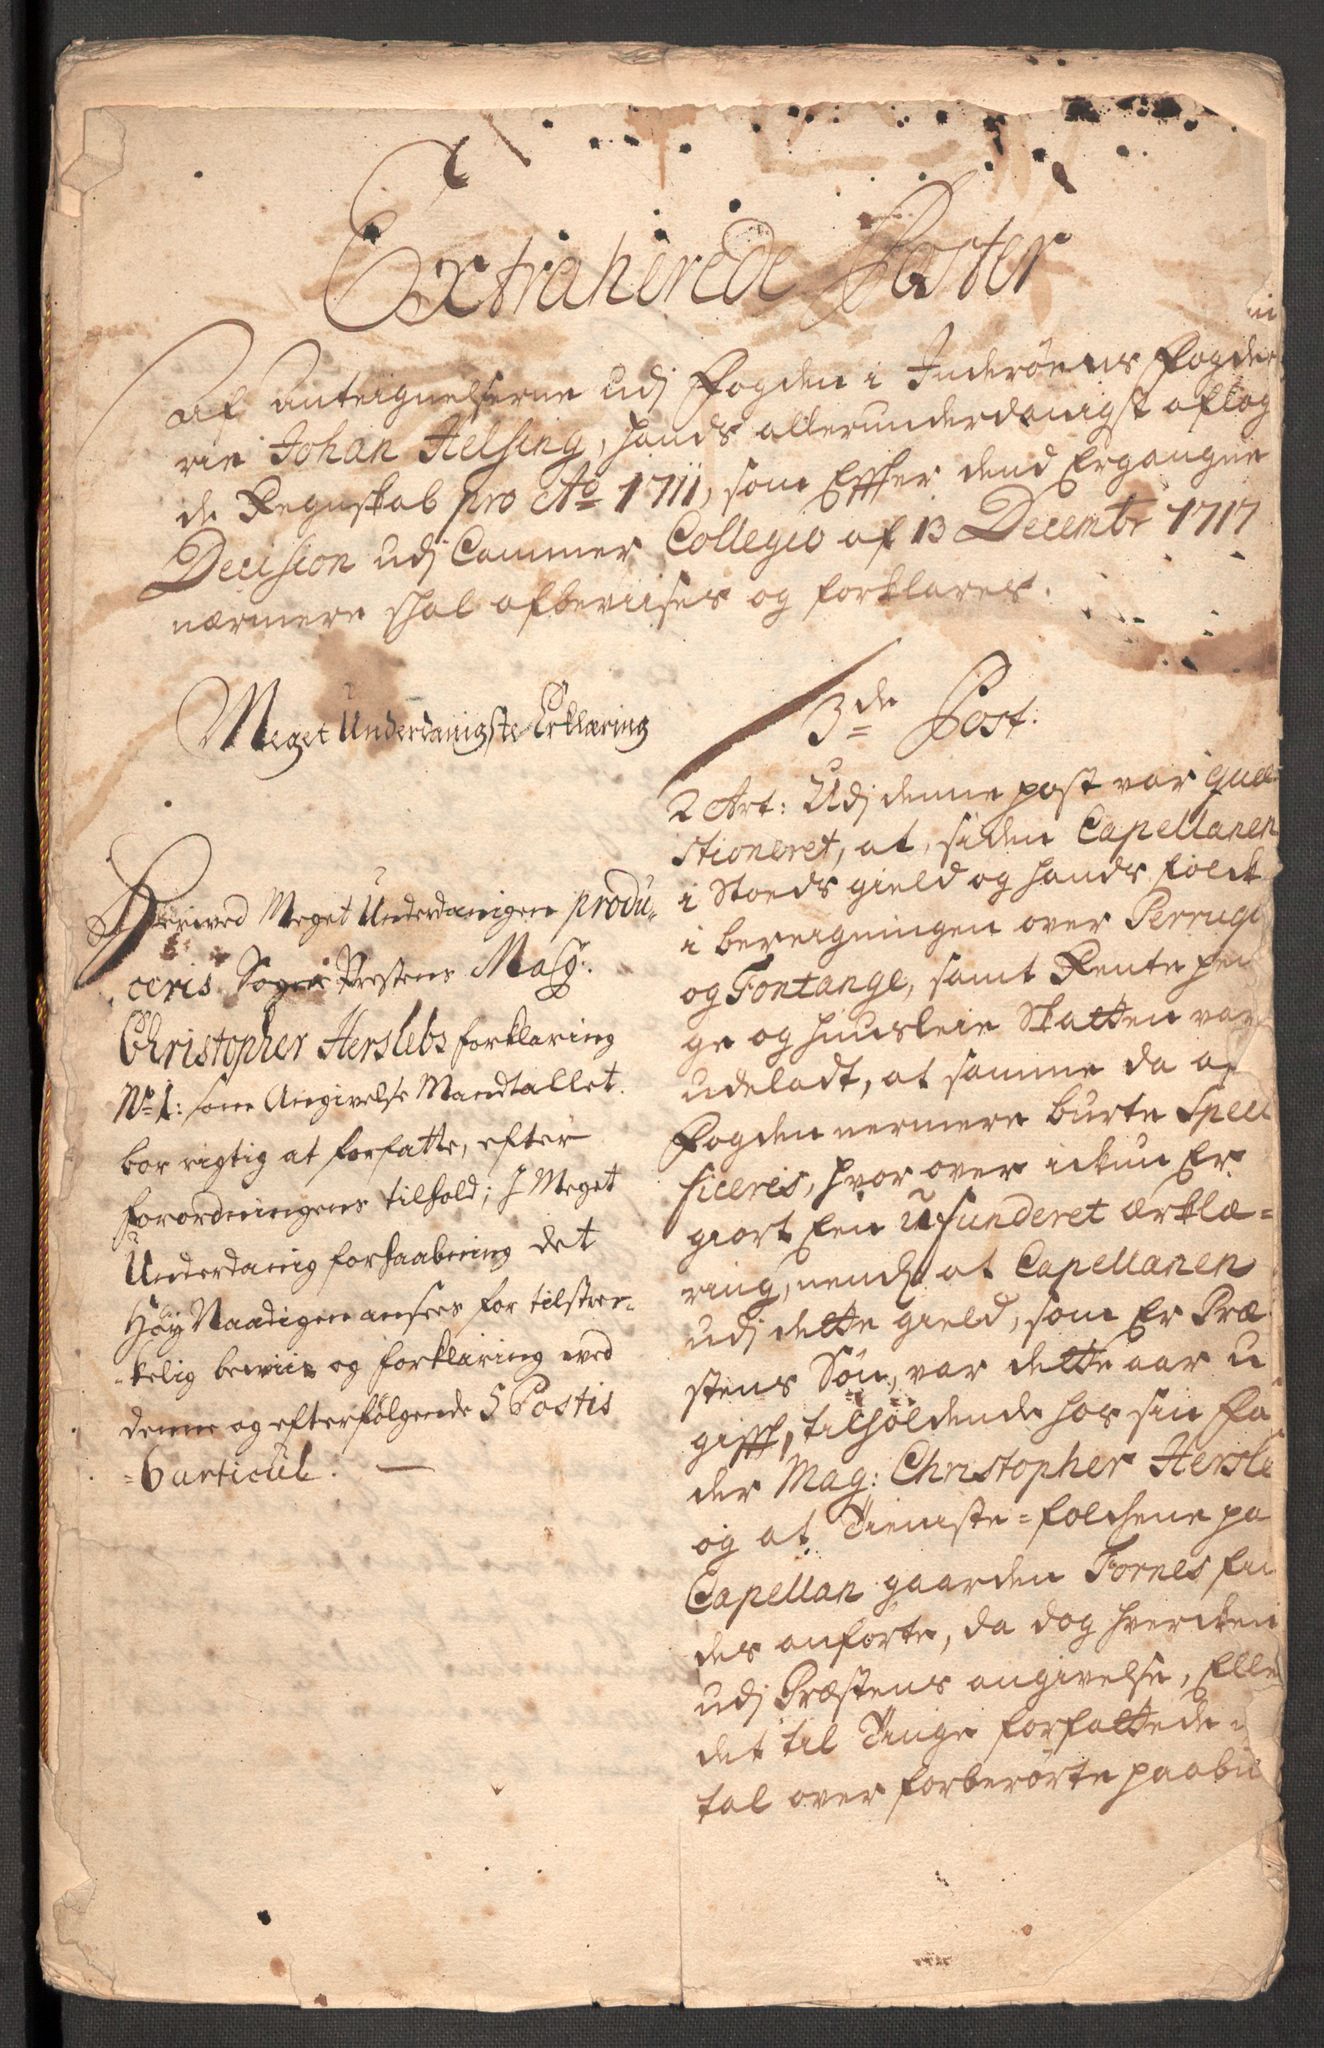 Extraherede Poster
Af Anteignelserne udj Fogden i Inderöens Fogde
rie Johan Helsing, hands allerunderdanigst aflag
de Regnskab pro Ao 1711, som Effter dend Ergangne
Decision udj Cammer Collegio af 13 Decembr 1717
nærmere skal afbeviises og forklares.
Meget Underdanigste Erklæring
Herived Meget Underdanigen produ-
ceris Sogne Prestens Mag:
Christopher Herslebs forklaring
No 1: som Angivelse Mandtallet
bor rigtig at forfatte, efter
forordningens tilhold; J Meget
Underdanig forhaabning det
Høy Naadigen ansees for tilstrec-
-kelig beviis og forklaring ved
denne og efterfølgende 5 Postis
-6 articul. —
3de Post:
2 Art: Udj denne post var quæ
stioneret, at, siden Capellanen
i Stoeds gield og hands folck
i bereigningen over Perruge
og Fontange, samt Rente pen
ge og huusleie Skatten var
udeladt, at samme da af
Fogden nermere burte Speci
ficeris, hvor over ickun Er
giort Een ufunderet ærklæ=
ring, nembl at Capellanen
udj dette gield, som Er Præ
stens Søn, var dette aar u
gifft, tilholdende hos sin Fa
der Mag: Christopher Hersle
og at Tieniste=folckene pa
Capellan gaarden Fornes fin
des anførte, da dog hvercken
udj Præstens angivelse, Elle
det til Tinge forfattede
tal over forberørte paabu